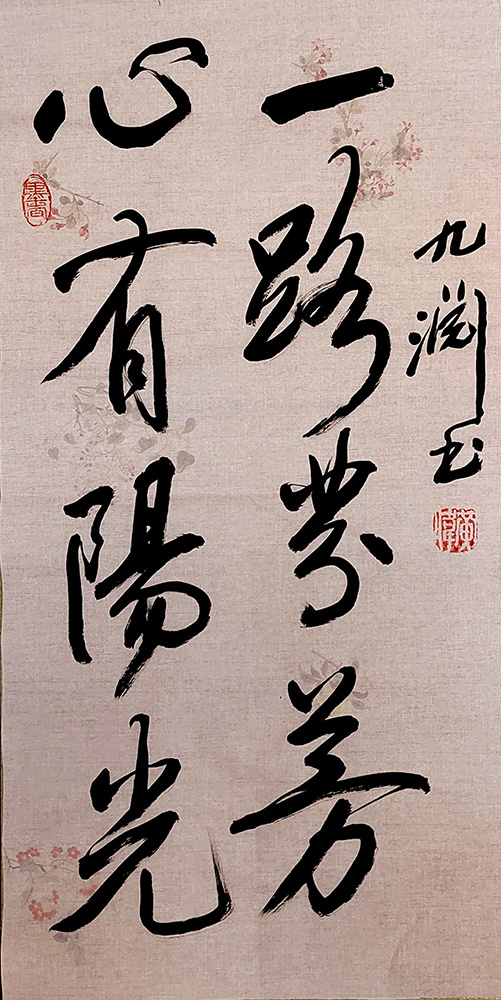 心有陽光
一路芬芳
九 书
墨香